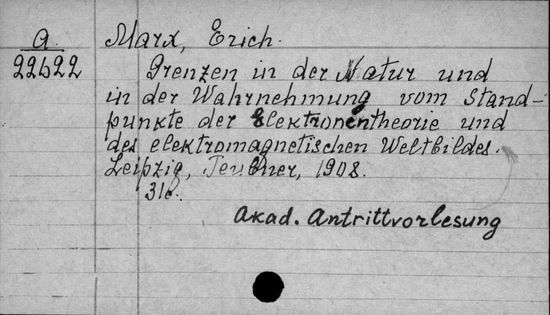 a. Marx, Erich.
22622 Grenzen in der Natur und
in der Wahrnehmung vom Stand-
punkte der Elektronentheorie und
des elektromagnetischen Weltbildes.
Leipzig, Teubner, 1908.
31c.
Akad. Antrittvorlesung